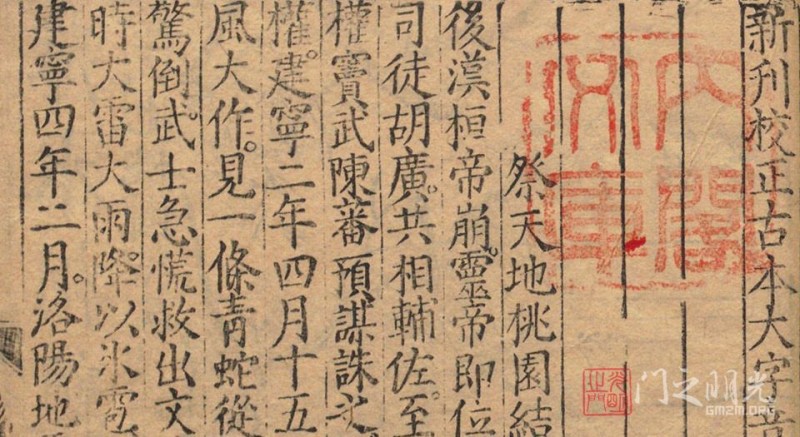 新刊校正古本大字音
祭天地桃園結
後漢桓帝崩。靈帝即位
司徒胡廣。共相輔佐。至
權。竇武陳蕃預謀誅之
權。建寧二年四月十五
風大作。見一條青蛇從
驚倒。武士急慌救出。文
時大雷大雨。降以氷雹
建寧四年二月。洛陽地
内閣文庫
光明之门
GMZM.ORG